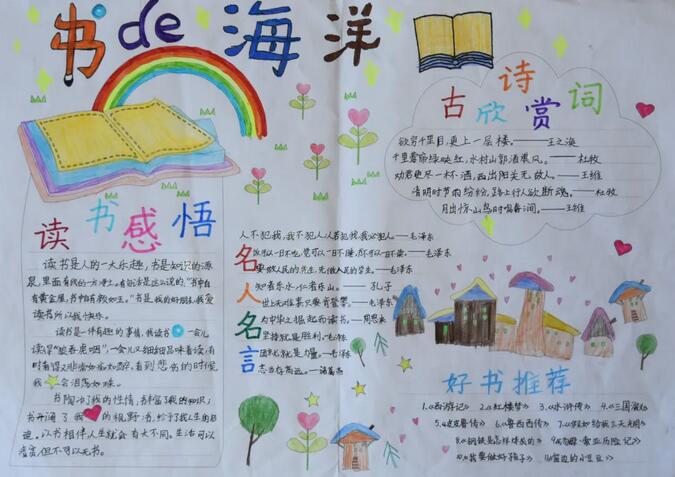 书de海洋
古诗欣赏词
欲穷千里目,更上一层楼。——王之涣
千里莺啼绿映红,水村山郭酒旗风。——杜牧
劝君更尽一杯酒,西出阳关无故人。——王维
清明时节雨纷纷,路上行人欲断魂。——杜牧
月出惊山鸟时鸣春涧。——王维
读书感悟
读书是人的一大乐趣,书是知识的源
泉,里面有我的一方净土。有俗话是这么说的,"书中自
有黄金屋,书中自有颜如玉。"书是我的好朋友,我爱
读书所以我快乐。
读书是一件有趣的事情,我读书一会儿
读得"狼吞虎咽",一会儿又细细品味着读,有
时看得又非常如痴如醉,看到悲伤的时候
我会泪落如珠。
书陶冶了我的性情,书丰富了我的知识,
书开阔了我的视野
以书相伴人生就会有大不同。生活可以
清贫,但不可以无书。
名人名言
人不犯我,我不犯人,人若犯我,我必犯人——毛泽东
饭可以一日不吃,觉可以一日不睡,书不可以一日不读。——毛泽东
要做人民的先生,先做人民的学生。——毛泽东
知者乐水,仁者乐山。——孔子
世上无难事只要肯登攀。——毛泽东
为中华之崛起而读书。——周恩来
坚持就是胜利。——毛泽东
团结就是力量。——毛泽东
志当存高远。——诸葛亮
好书推荐
1.《西游记》 2.《红楼梦》 3.《水浒传》 4.《三国演义》
5.《皮皮鲁传》 6.《鲁西西传》 7.《假如给我三天光明》
8.《钢铁是怎样炼成的》 9.《汤姆·索亚历险记》
10.《我要做好孩子》 11.《窗边的小豆豆》